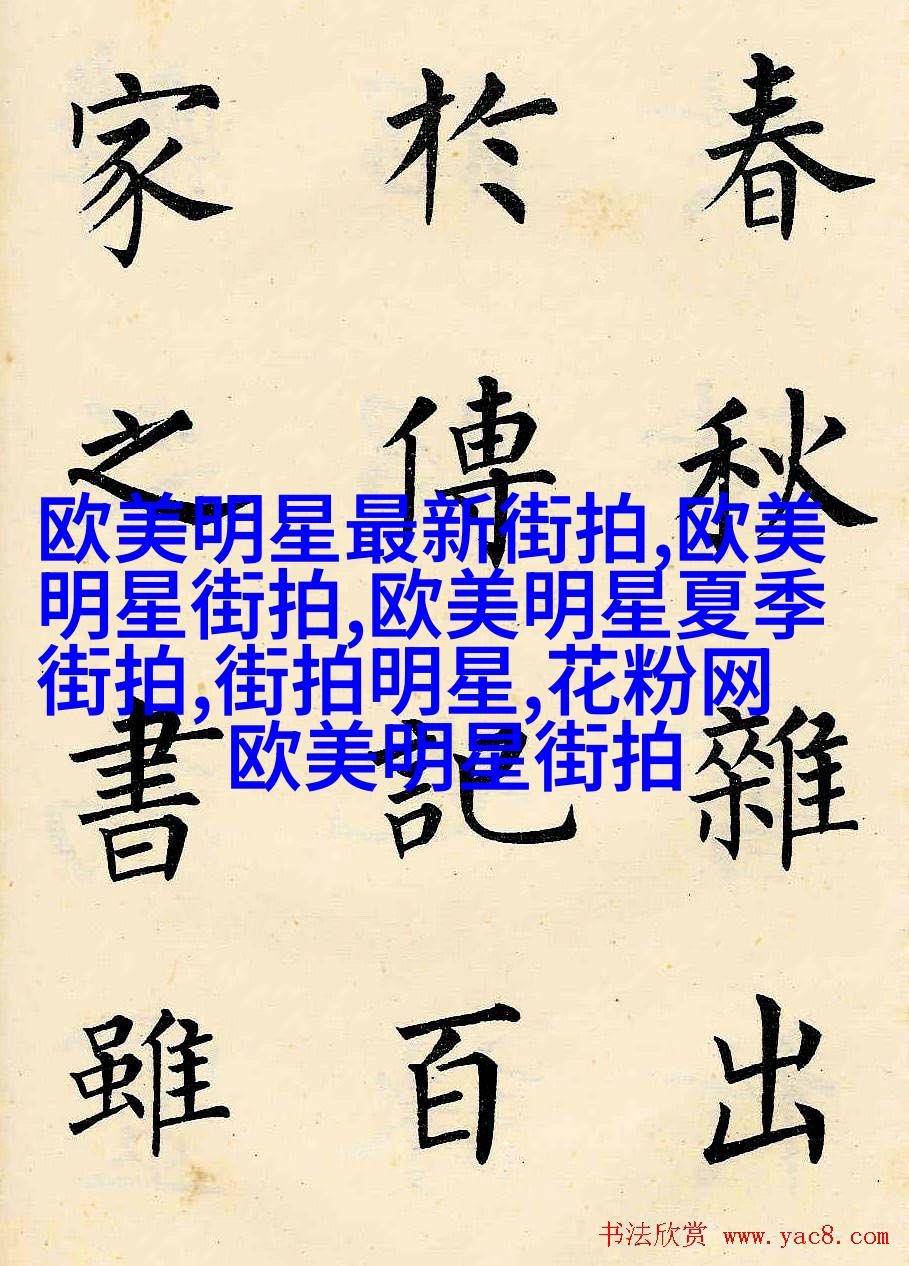 春秋雜出
於傳記百
家之書雖
欧美明星最新街拍,欧美
明星街拍,欧美明星夏季
街拍,街拍明星,花粉网
欧美明星街拍
书法欣赏 www.yac8.com